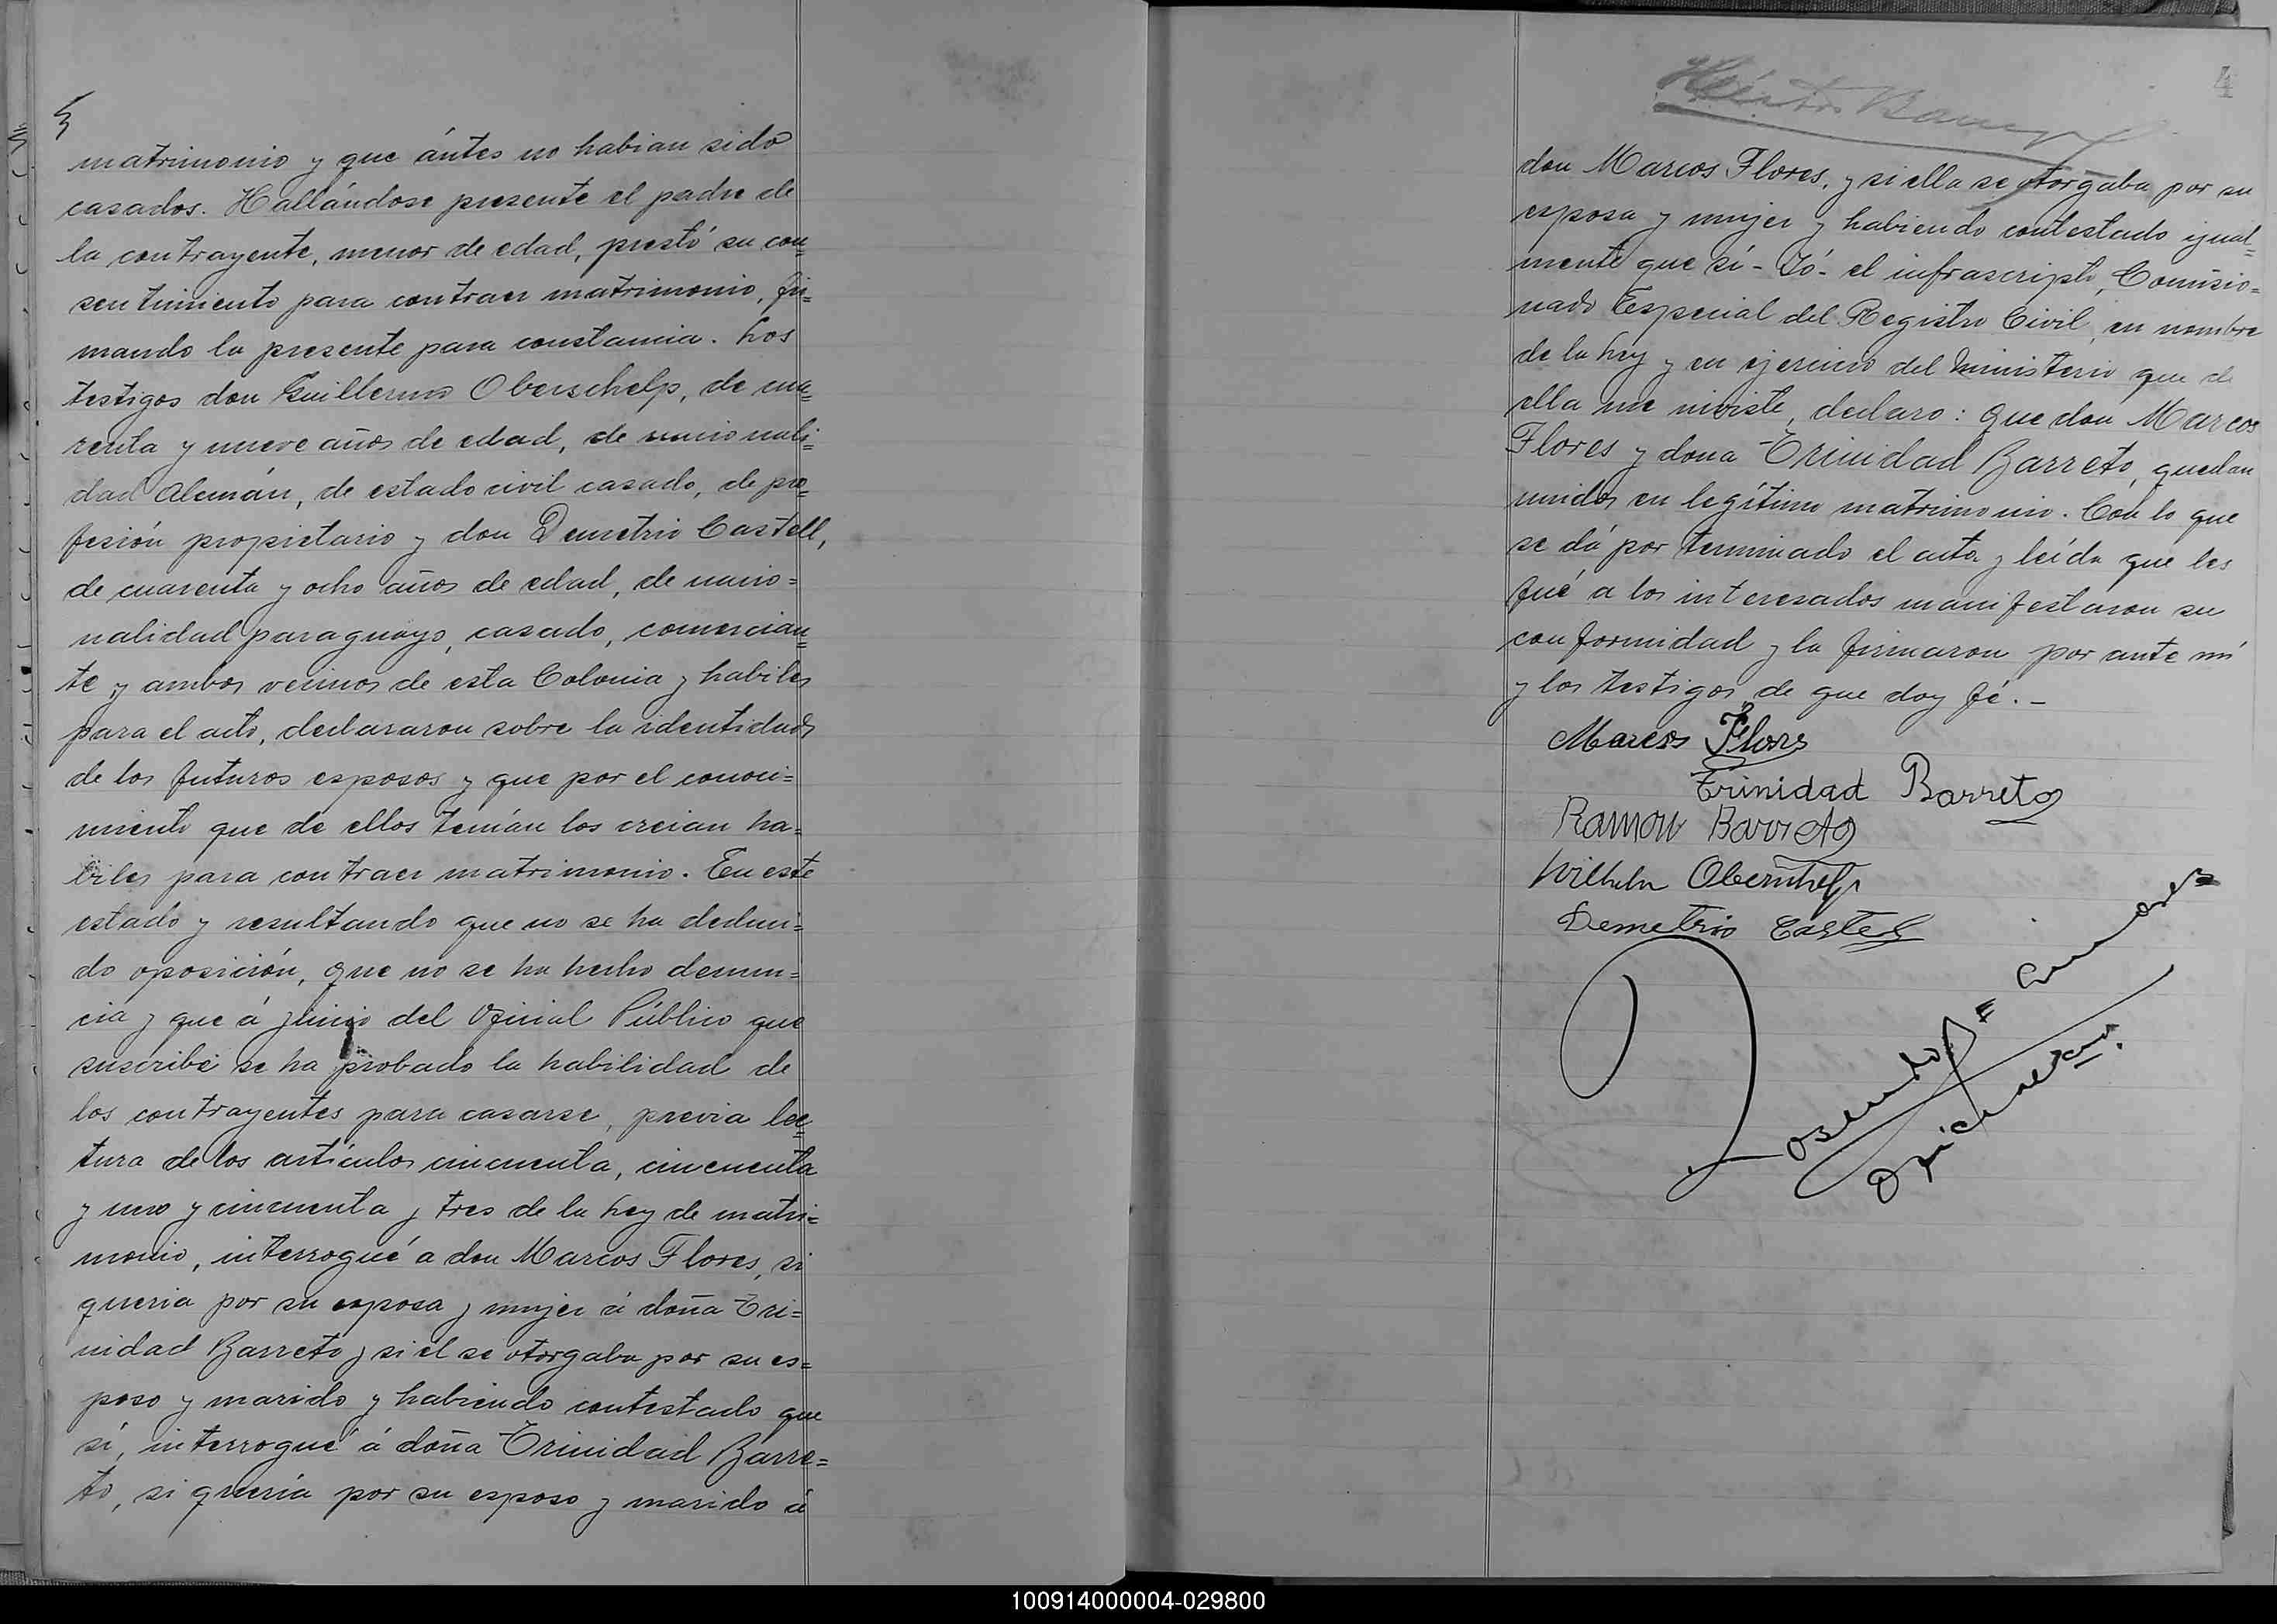 matrimonio y que ántes no habian sido
casados. Hallándose presente el padre de
la contrayente, menor de edad, prestó su con=
sentimiento para contraer matrimonio, fir=
mando la presente para constancia. Los
testigos don Guillermo Oberschelp, de cua=
renta y nueve años de edad, de nacionali=
dad Alemán, de estado civil casado, de pro=
fesión propietario y don Demetrio Castell,
de cuarenta y ocho años de edad, de nacio=
nalidad paraguayo, casado, comercian=
te y ambos vecinos de esta Colonia y habiles
para el acto, declararon sobre la identidad
de los futuros esposos y que por el conoci=
miento que de ellos tenían los creian ha=
biles para contraer matrimonio. En este
estado y resultando que no se ha deduci=
do oposición, que no se ha hecho denun=
cia y que á juicio del Oficial Público que
suscribe se ha probado la habilidad de
los contrayentes para casarse, previa lec=
tura de los artículos cincuenta, cincuenta
y uno y cincuenta y tres de la Ley de matri=
monio, interrogué a don Marcos Flores, si
queria por su esposa y mujer á doña Tri=
nidad Barreto y si él se otorgaba por su es=
poso y marido y habiendo contestado que
sí, interrogué á doña Trinidad Barre=
to, si quería por su esposo y marido á
4
don Marcos Flores, y si ella se otorgaba por su
esposa y mujer y habiendo contestado igual=
mente que sí - Yó - el infrascripto, Comisio=
nado Especial del Registro Civil, en nombre
de la Ley y en ejercicio del Ministerio que de
ella me inviste, declaro: Que don Marcos
Flores y dona Trinidad Barreto, quedan
unidos en legítimo matrimonio. Con lo que
se dá por terminado el acta y leída que les
fué a los interesados manifestaron su
conformidad y la firmaron por ante mí
y los testigos de que doy fé. -
Marcos Flores
Trinidad Barreto
Ramon Barreto
Wilhelm Oberschelp
Demetrio Castell
Rosendo
100914000004-029800